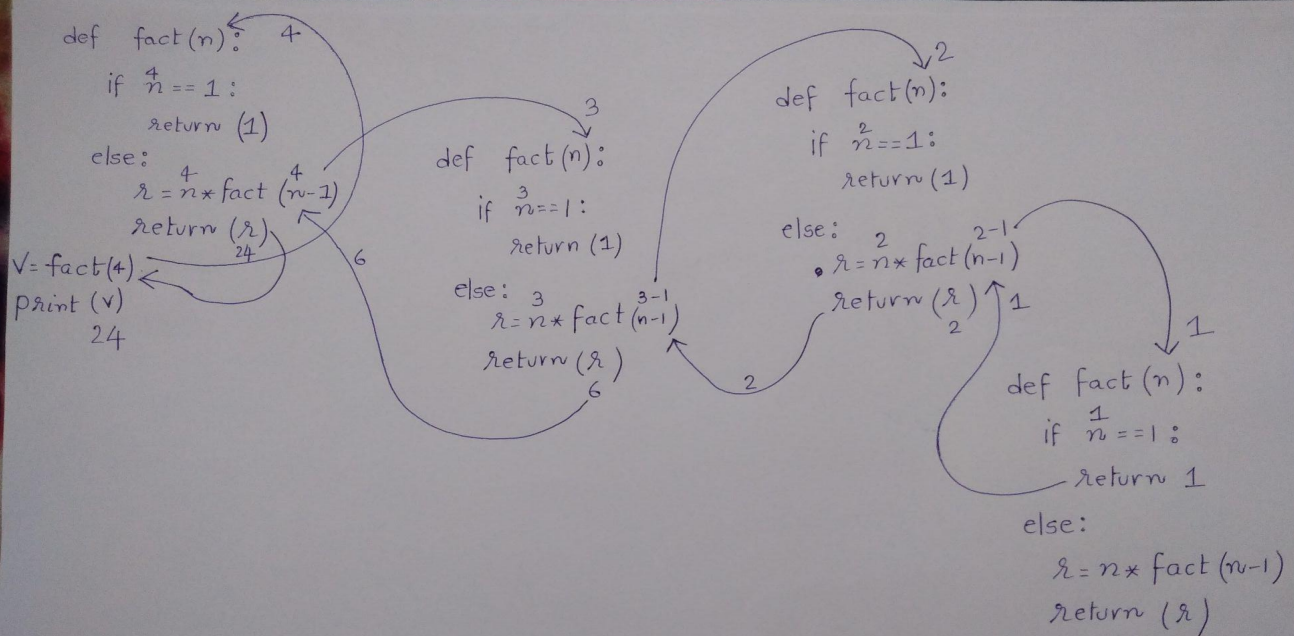 def fact(n): 4
4
if n == 1:
return (1)
else:
4 4
r = n* fact (n-1)
return (r)
24
V= fact(4)
print (v)
24
3
def fact(n):
3
if n==1:
return (1)
else: 3 3-1
r= n* fact (n-1)
return (r)
6
6
2
def fact(n):
2
if n==1:
return (1)
else: 2 2-1
r= n* fact(n-1)
return (r) 1
2
2
1
def fact(n):
1
if n ==1:
return 1
else:
r= n* fact (n-1)
return (r)